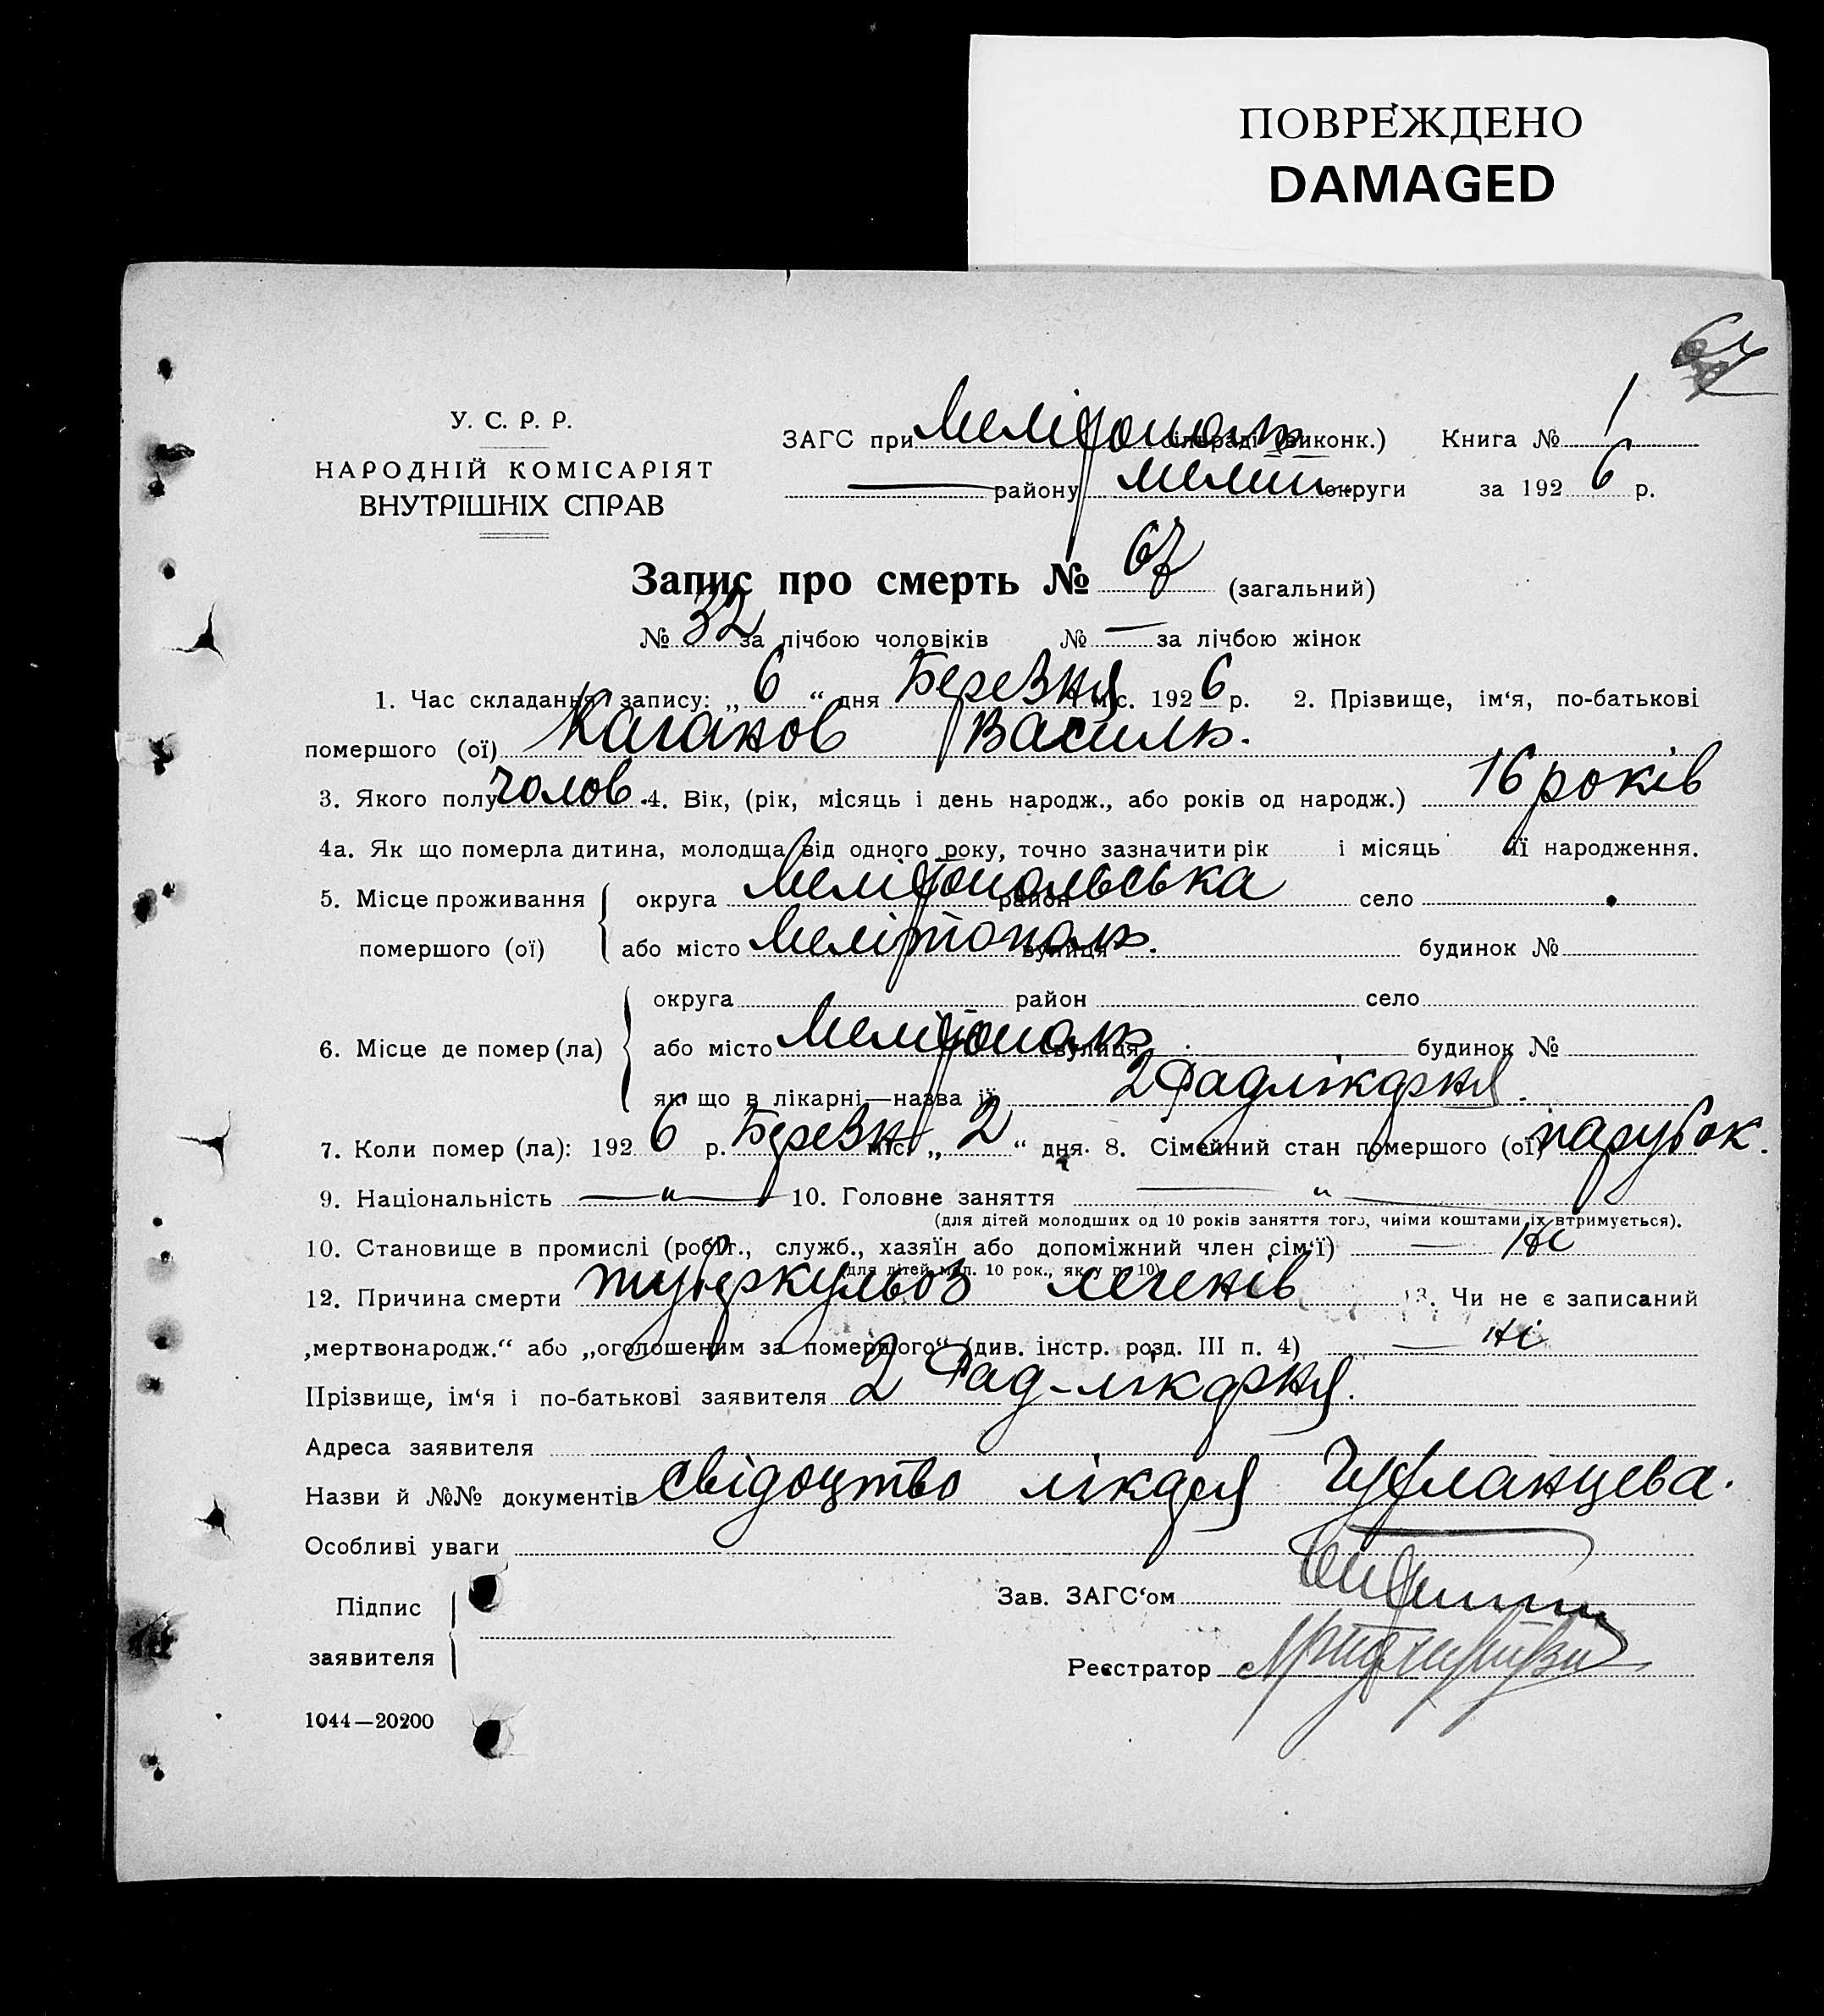 ПОВРЕЖДЕНО
DAMAGED
67
У. С. Р. Р.
НАРОДНІЙ КОМІСАРІЯТ
ВНУТРІШНІХ СПРАВ
ЗАГС при Мелітополь сільраді (виконк.) Книга № 1
— району Меліт. округи за 1926 р.
Запис про смерть № 67 (загальний)
№ 32 за лічбою чоловіків № — за лічбою жінок
1. Час складання запису: „ 6 “ дня Березня міс. 1926 р. 2. Прізвище, ім‘я, по-батькові
помершого (ої) Каганов Василь.
3. Якого полу чолов. 4. Вік, (рік, місяць і день народж., або років од народж.) 16 років
4а. Як що померла дитина, молодща від одного року, точно зазначити рік і місяць її народження.
5. Місце проживання помершого (ої) округа Мелітопольська район село
або місто Мелітополь. вулиця будинок №
6. Місце де помер (ла) округа район село
або місто Мелітополь вулиця будинок №
як що в лікарні—назва її 2 Радлікарня.
7. Коли помер (ла): 1926 р. Березн. міс. „ 2 “ дня. 8. Сімейний стан помершого (ої) парубок.
9. Національність — „ — 10. Головне заняття — „ —
(для дітей молодших од 10 років заняття того, чиїми коштами їх втримується).
10. Становище в промислі (робіт., служб., хазяїн або допоміжний член сім‘ї) — Ні
(для дітей мол. 10 рок., як у п. 10)
12. Причина смерти туберкульоз легенів 13. Чи не є записаний
„мертвонародж.“ або „оголошеним за померлого“ (див. інстр. розд. III п. 4) — Ні
Прізвище, ім‘я і по-батькові заявителя 2 Рад-лікарня.
Адреса заявителя
Назви й №№ документів свідоцтво лікаря
Особливі уваги
Підпис заявителя
Зав. ЗАГС‘ом
Реєстратор
1044—20200